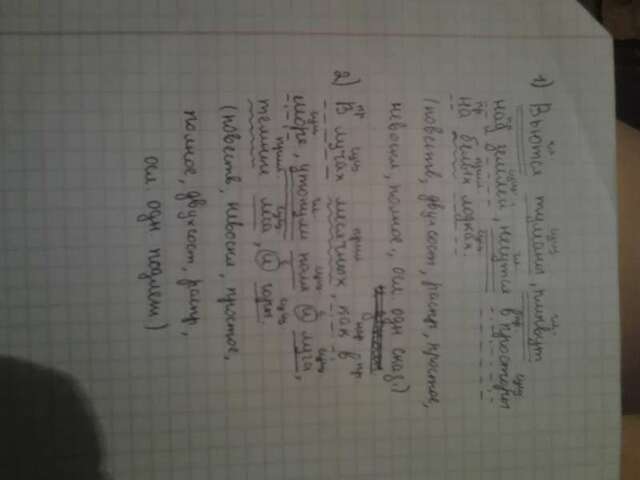 1) Вьются туманы, плывут
над землёй, несутся в просторы
на белых лодках.
(повеств, двухсост, распр, простое,
невоскл, полное, осл. одн сказ.)
2) В лучах месячных, как в
море, утонули поля и луга,
темные леса, и горы.
(повеств, невоскл, простое,
полное, двухсост, распр,
осл одн подлеж)